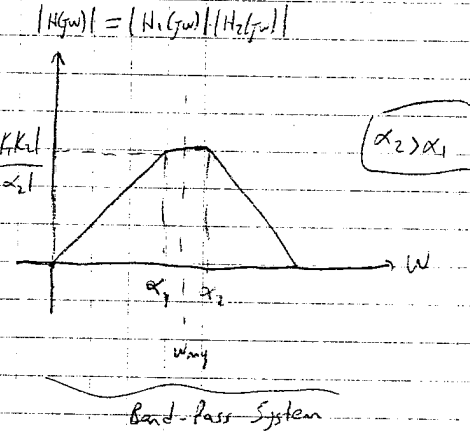 |H(jw)| = |H₁(jw)| |H₂(jw)|
|K₁K₂|
α₂
α₂ > α₁
W
α₁ α₂
Band-Pass System